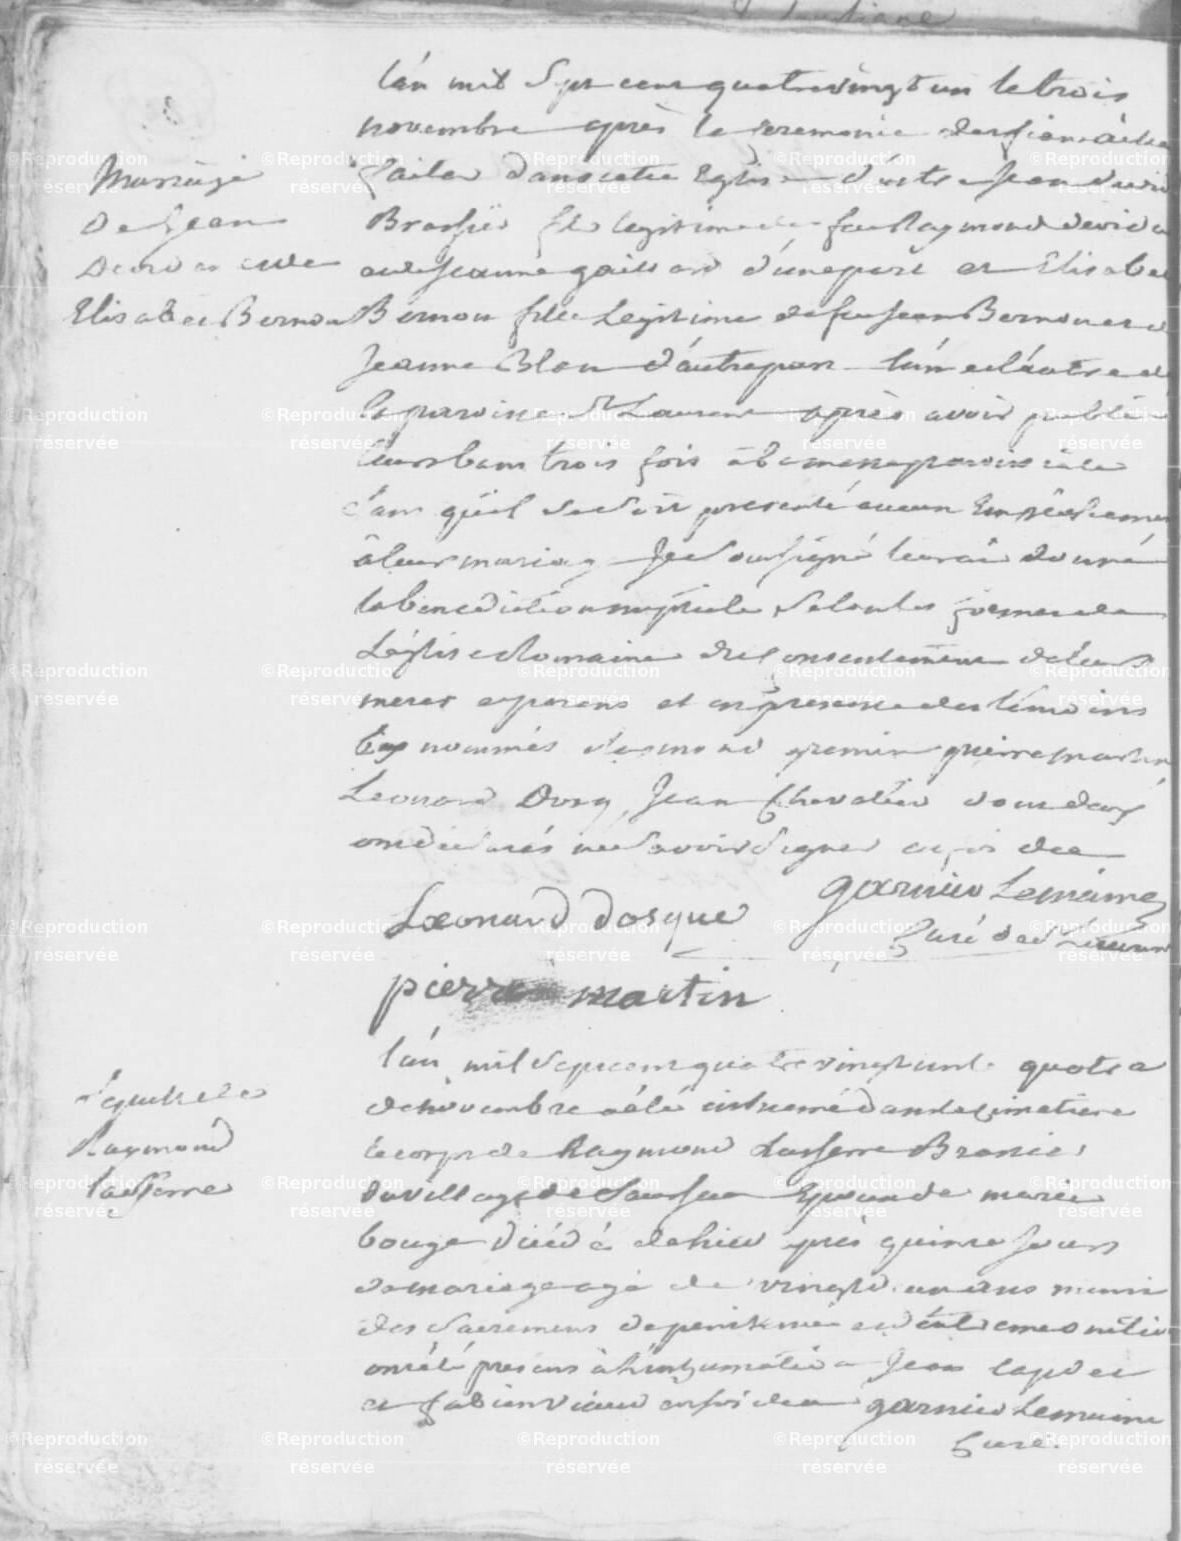 Mariage
De Jean
Elisabet Bernou
l'an mil Sept cent quatrevingt un le trois
novembre après la ceremonie des fiancailles
faites dans cette Eglise d'entre Jean
Brassier fils legitime de feu Raymond
et de Jeanne gaillard d'une part et Elisabet
Bernou fille Legitime de feu Jean Bernou et de
Jeanne Blou d'autre part l'un et l'autre de
la paroisse St Laurent après avoir publié
leurs bans trois fois a la messe paroissiale
sans qu'il se soit presenté aucun Empêchement
à leur mariage Je soussigné leur ai donné
la benediction nuptiale selon les formes de
L'église Romaine du consentement de leurs
meres et parens et en presence des témoins
nommés pierre martin
Leonard Dosq, Jean Chevalier
ont déclarés ne savoir signer en foi de
Leonard Dosque
garnier Lemaine
Curé de St Laurent
pierre martin
sepulture de
Raymond
lasserre
l'an mil sept cent quatre vingt un le quatre
de novembre a été inhumé dans le cimetiere
le corps de Raymond Lasserre Brassier
du village de Epoux de marie
bouge décédé d'hier après quinze jours
de mariage agé de vingt un ans muni
des sacremens de penitence et d'extreme onction
ont été presens à l'inhumation Jean
et en foi de garnier Lemaine
Curé
©Reproduction
réservée